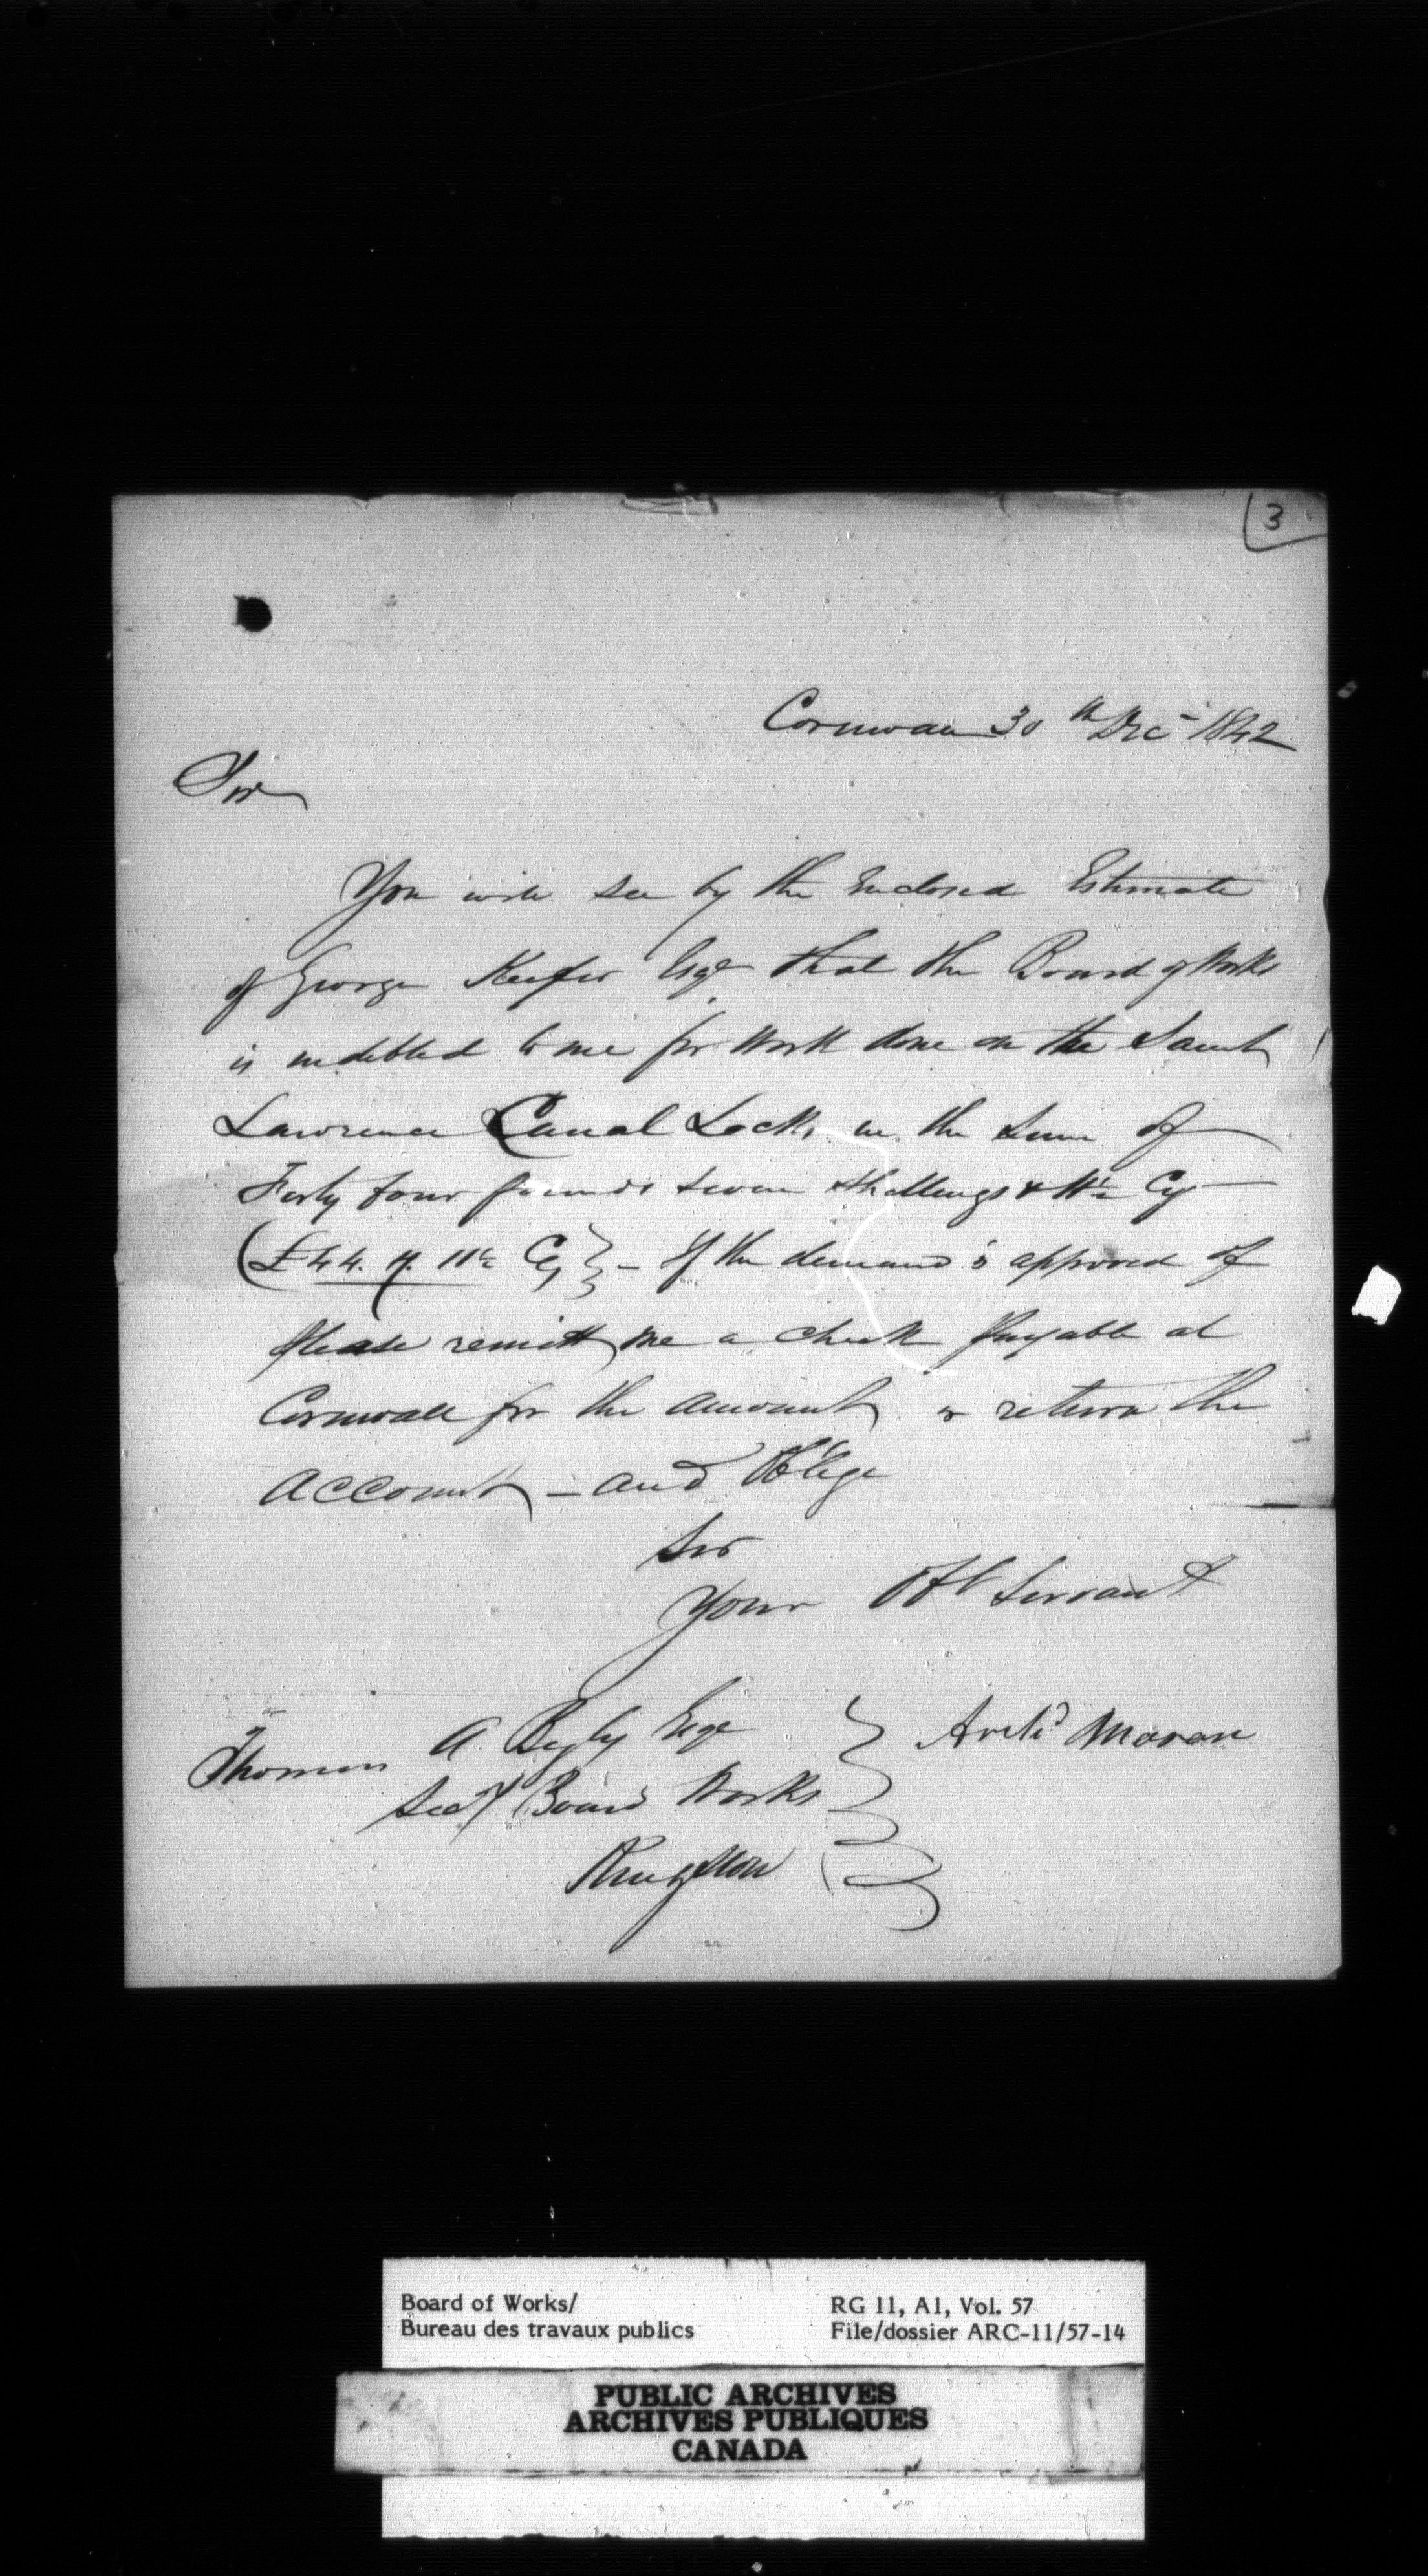 3
Cornwall 30th Dec 1842
Sir
You will see by the Enclosed Estimate
of George Keefer Esqr that the Board of Works
is indebted to me for Work done on the Saint
Lawrence Canal Locks in the Sum of
Forty four pounds seven Shillings & 11½ Cy
(£44. 7. 11½ Cy} – If the demand is approved of
please remitt me a check payable at
Cornwall for the amount or return the
Account – and Oblige
Sir
Your Obt Servant
Thomas A. Begly Esqr
Archd Moran
Secy Board Works
Kingston
Board of Works/
Bureau des travaux publics
RG 11, A1, Vol. 57
File/dossier ARC-11/57-14
PUBLIC ARCHIVES
ARCHIVES PUBLIQUES
CANADA